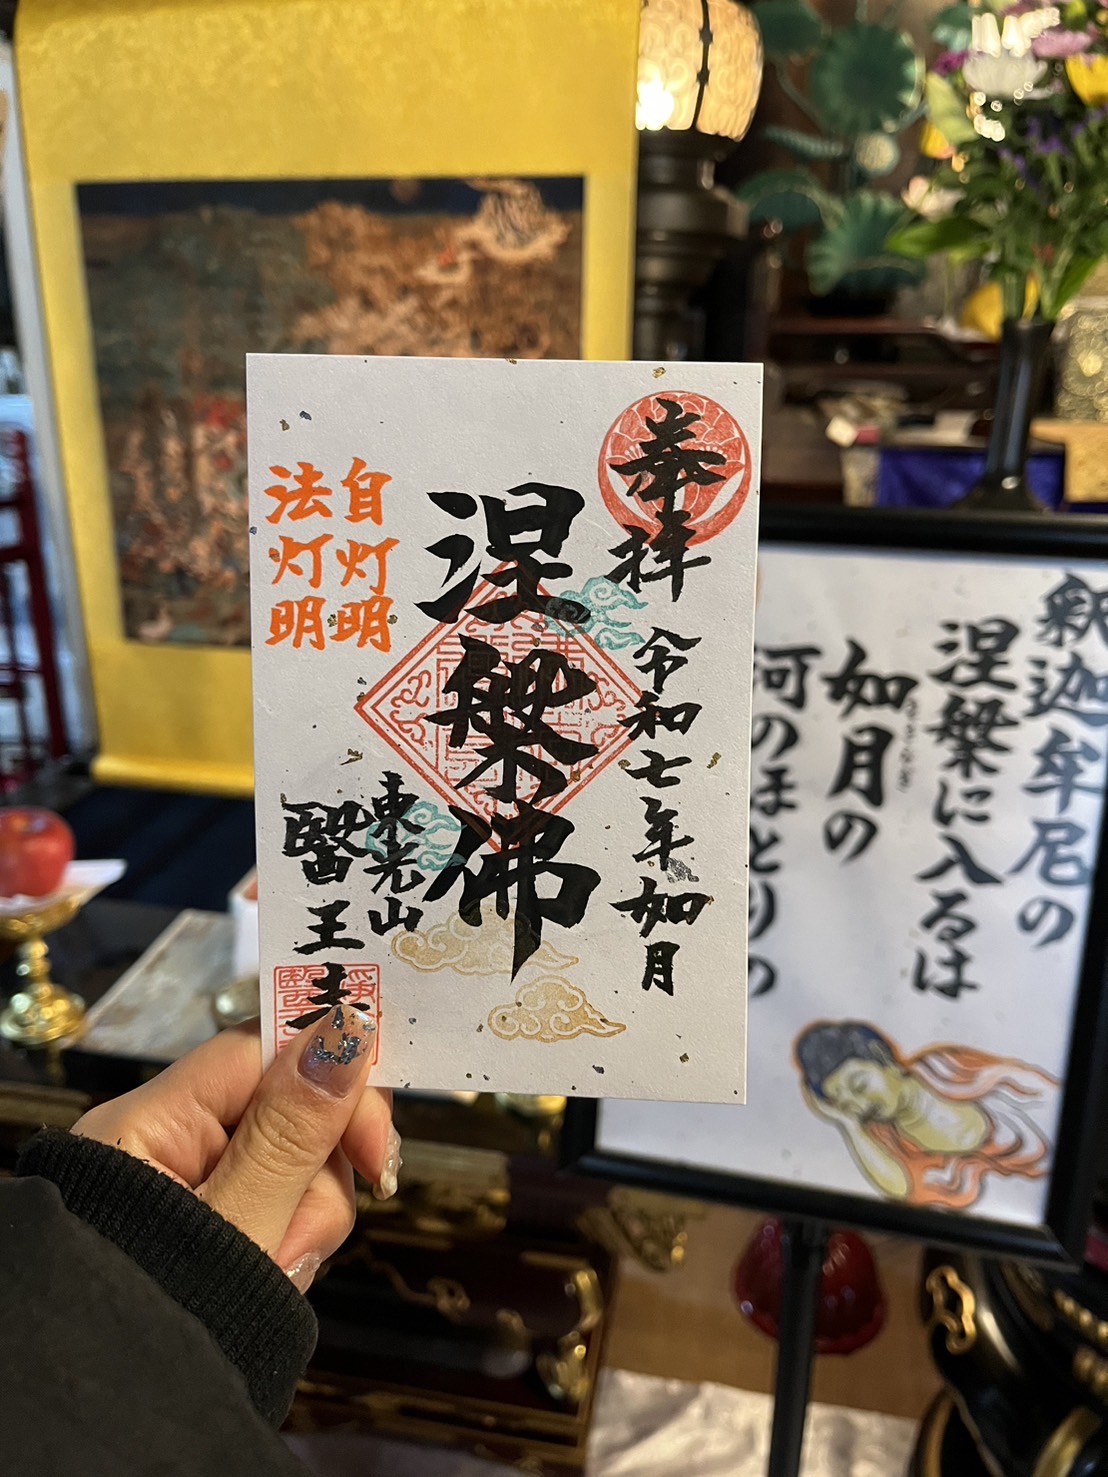 奉拝
令和七年如月
涅槃佛
自灯明
法灯明
東光山
醫王寺
釈迦牟尼の
涅槃に入るは
如月の
きさらぎ
河のほとりの